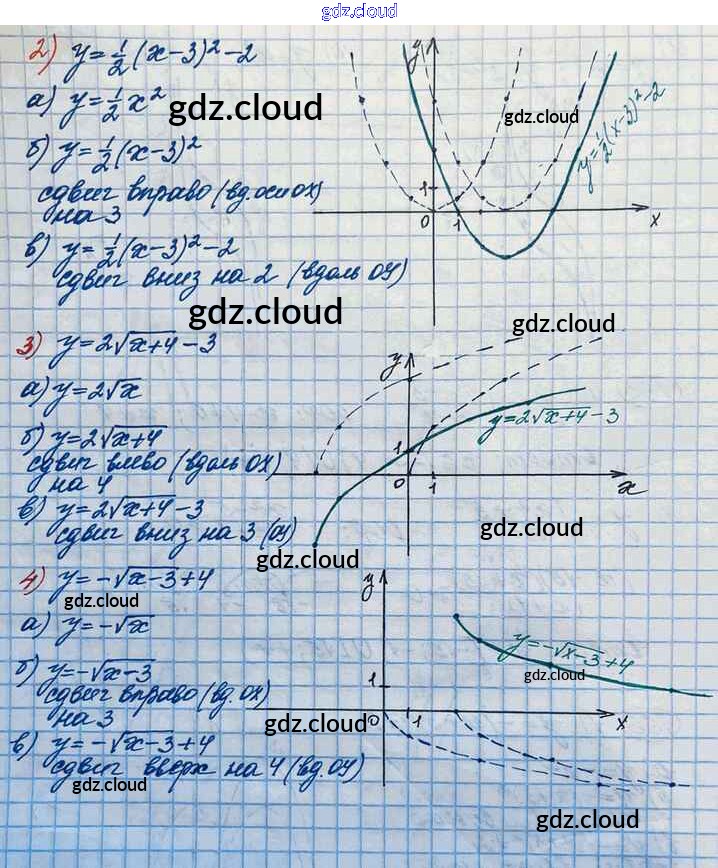 gdz.cloud
2) y = 1/2 (x-3)² - 2
а) y = 1/2 x²
gdz.cloud
gdz.cloud
б) y = 1/2 (x-3)²
сдвиг вправо (вд. оси OX)
на 3
в) y = 1/2 (x-3)² - 2
сдвиг вниз на 2 (вдоль OY)
y
1
0
1
x
y = 1/2 (x-3)² - 2
gdz.cloud
gdz.cloud
3) y = 2√x+4 - 3
а) y = 2√x
б) y = 2√x+4
сдвиг влево (вдоль OX)
на 4
в) y = 2√x+4 - 3
сдвиг вниз на 3 (OY)
y
1
0
1
x
y = 2√x+4 - 3
gdz.cloud
gdz.cloud
4) y = -√x-3 + 4
gdz.cloud
а) y = -√x
б) y = -√x-3
сдвиг вправо (вд. OX)
на 3
в) y = -√x-3 + 4
сдвиг вверх на 4 (вд. OY)
y
1
0
1
x
y = -√x-3 + 4
gdz.cloud
gdz.cloud
gdz.cloud
gdz.cloud